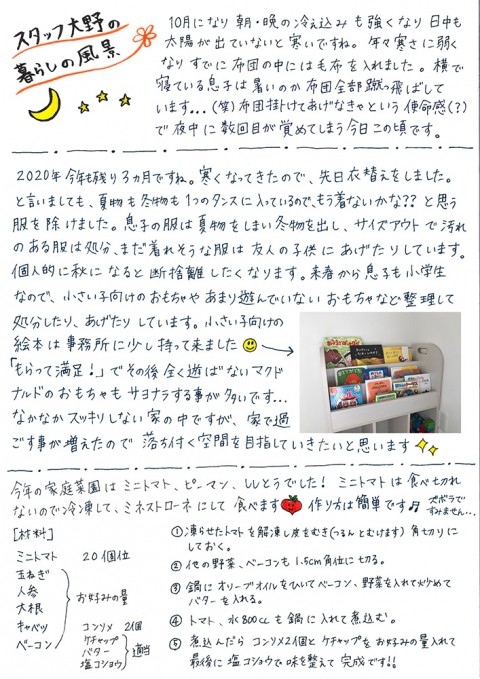 スタッフ大野の
暮らしの風景
10月になり 朝・晩の冷え込みも強くなり 日中も
太陽が出ていないと寒いですね。年々寒さに弱く
なり すでに布団の中には毛布を入れました。横で
寝ている息子は暑いのか布団全部蹴っ飛ばして
います...(笑)布団掛けてあげなきゃという使命感(?)
で夜中に数回目が覚めてしまう今日この頃です。
2020年今年も残り3ヵ月ですね。寒くなってきたので、先日衣替えをしました。
と言いましても、夏物も冬物も1つのタンスに入っているので、もう着ないかな??と思う
服を除けました。息子の服は夏物をしまい冬物を出し、サイズアウトで汚れ
のある服は処分、まだ着れそうな服は友人の子供にあげたりしています。
個人的に秋になると断捨離したくなります。来春から息子も小学生
なので、小さい子向けのおもちゃやあまり遊んでいないおもちゃなど整理して
処分したり、あげたりしています。小さい子向けの
絵本は事務所に少し持って来ました
「もらって満足!」でその後全く遊ばないマクド
ナルドのおもちゃもサヨナラする事が多いです...
なかなかスッキリしない家の中ですが、家で過
ごす事が増えたので 落ち付く空間を目指していきたいと思います
今年の家庭菜園はミニトマト、ピーマン、ししとうでした! ミニトマトは食べ切れ
ないので冷凍して、ミネストローネにして食べます 作り方は簡単です♫ ズボラで
すみません...
[材料]
ミニトマト 20個位
玉ねぎ
人参
大根
キャベツ
ベーコン
お好みの量
コンソメ 2個
ケチャップ
バター
塩コショウ
適当
① 凍らせたトマトを解凍し皮をむき(つるんとむけます) 角切りに
しておく。
② 他の野菜、ベーコンも1.5cm角位に切る。
③ 鍋にオリーブオイルをひいてベーコン、野菜を入れて炒めて
バターを入れる。
④ トマト、水800ccも鍋に入れて煮込む。
⑤ 煮込んだら コンソメ2個とケチャップをお好みの量入れて
最後に塩コショウで味を整えて完成です!!